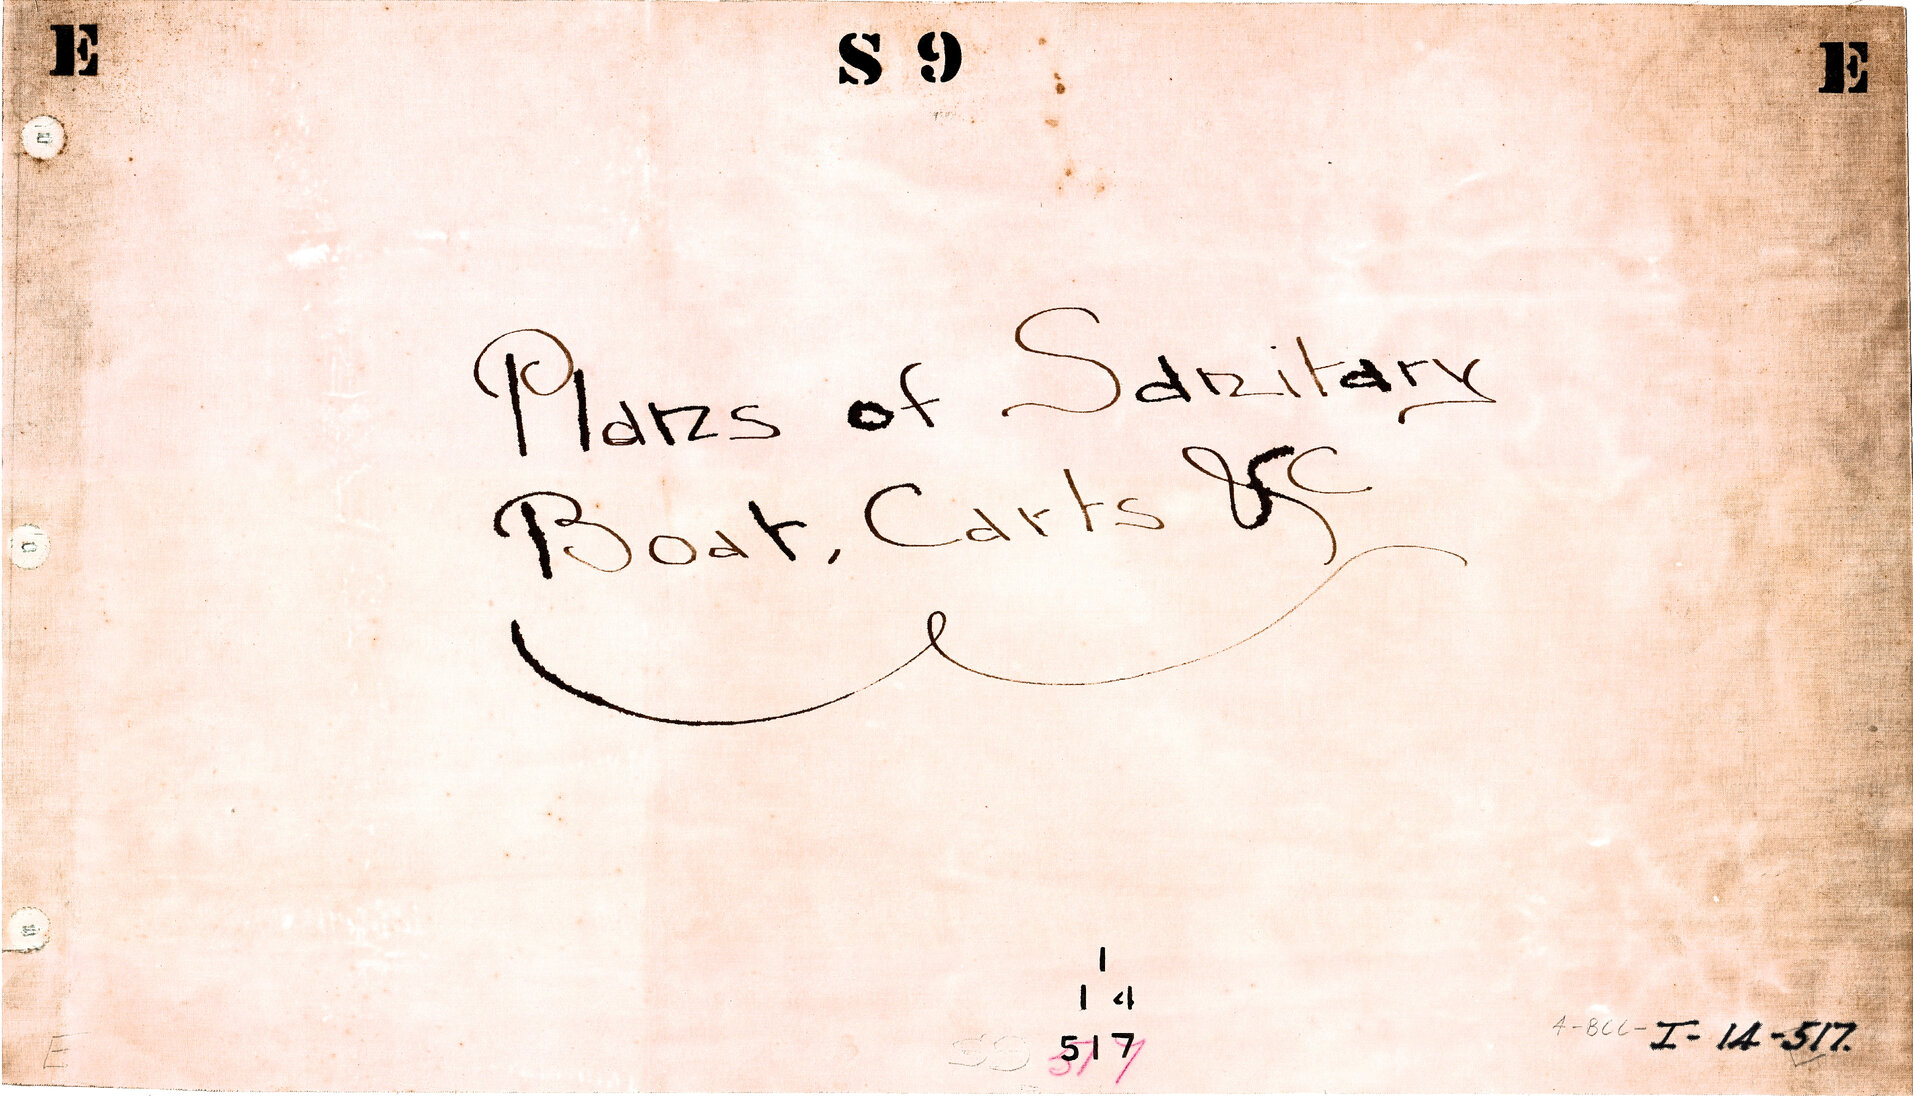 E S 9 E
Plans of Sanitary
Boat, Carts &c
1
1 4
517
S9 517
E
4-BCC-I-14-517.